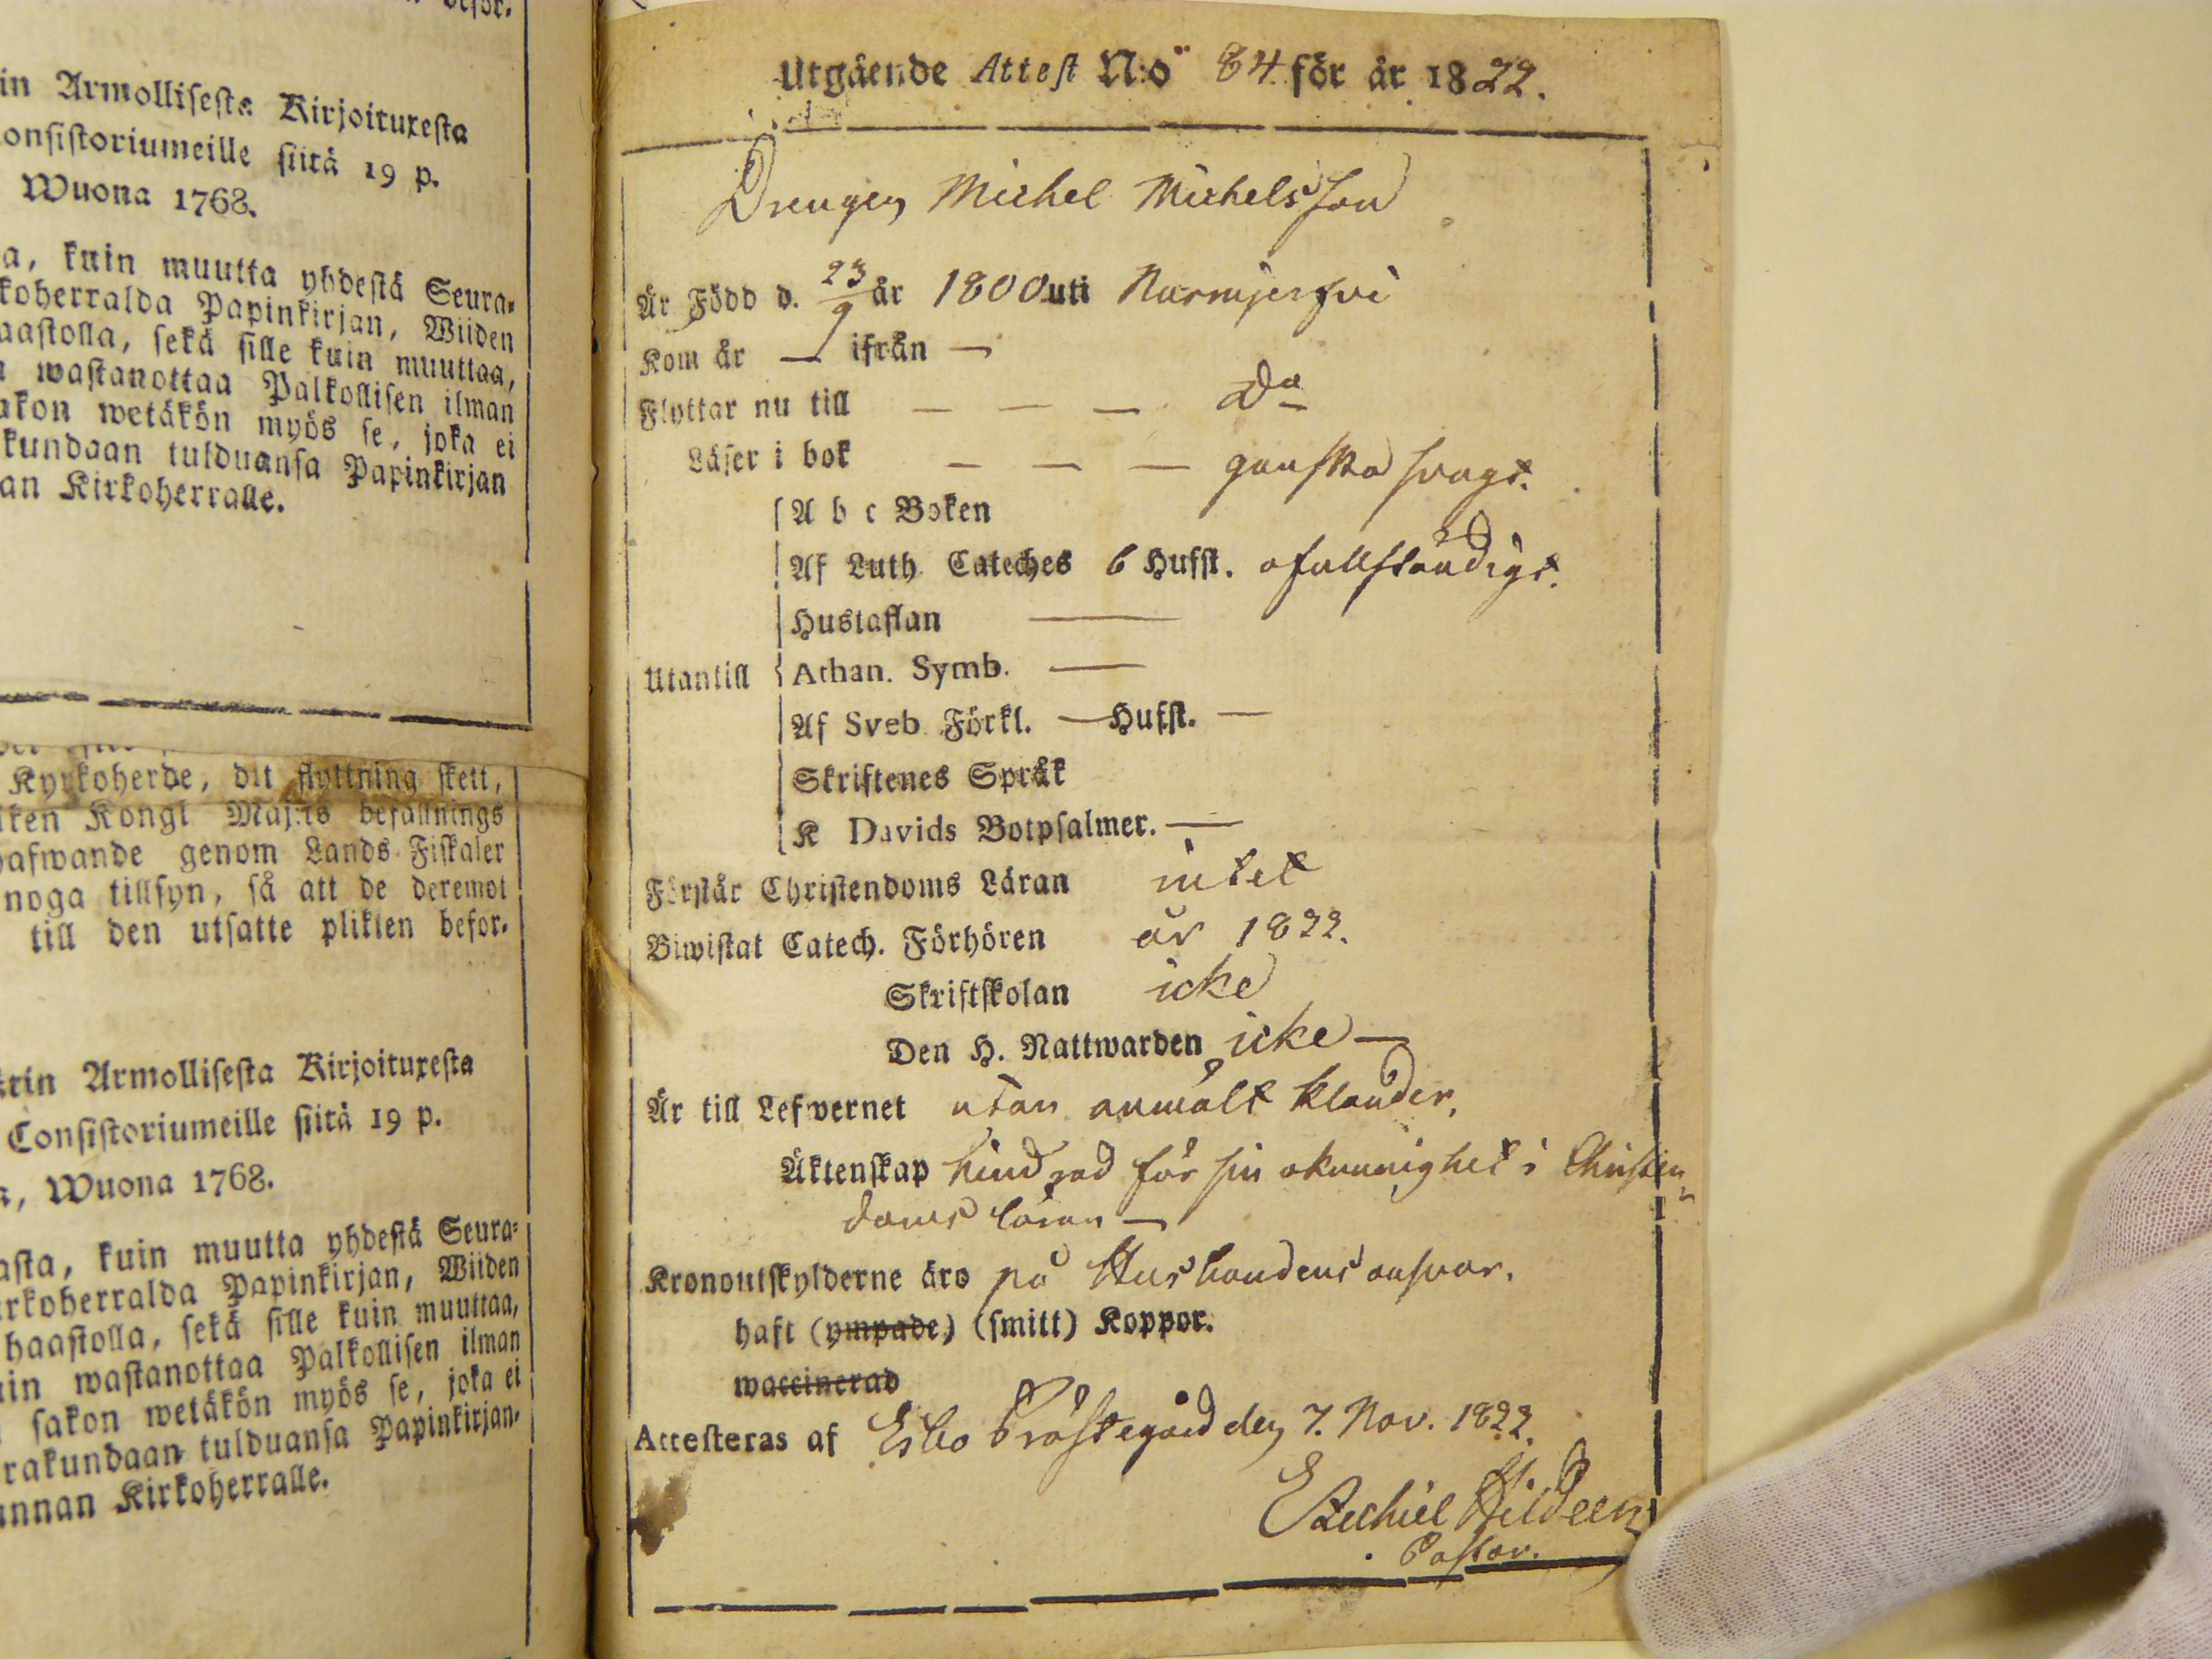 in Armollisesta Kirjoituxesta
onsistoriumeille siitä 19 p.
Wuona 1768.
a, kuin muutta yhdestä Seura-
koherralda Papinkirjan, Wiiden
aastolla, sekä sille kuin muuttaa,
wastanottaa Palkollisen ilman
akon wetäkön myös se, joka ei
kundaan tulduansa Papinkirjan
an Kirkoherralle.
Kyrkoherde, dit flyttning skett,
lken Kongl Maj:ts befallnings
hafwande genom Lands-Fiskaler
noga tillsyn, så att de deremot
till den utsatte plikten befor-
rin Armollisesta Kirjoituxesta
Consistoriumeille siitä 19 p.
a, Wuona 1768.
asta, kuin muutta yhdestä Seura-
rkoherralda Papinkirjan, Wiiden
haastolla, sekä sille kuin muuttaa,
in wastanottaa Palkollisen ilman
sakon wetäkön myös se, joka ei
rakundaan tulduansa Papinkirjan-
unnan Kirkoherralle.
Utgående Attest N:o 84 för år 1822.
Drengen Michel Michelsson
Är Född d. 23/9 år 1800 uti Nurmijerfvi
Kom år — ifrån —
Flyttar nu till — — — Do
Läser i bok — — — ganska svagt.
A b c Boken
Af Luth Cateches 6 Hufst. ofullständigt.
Hustaflan —
Utantill Athan. Symb. —
Af Sveb Förkl. — Hufst. —
Skriftenes Språk
K Davids Botpsalmer. —
Förstår Christendoms Läran intet
Biwistat Catech. Förhören år 1822.
Skriftskolan icke
Den H. Nattwarden icke —
Är till Lefwernet utan anmält klander.
Äktenskap hindrad för sin okunnighet i Christen-
doms läran —
Kronoutskylderne äro på Husbondens ansvar.
haft (ympade) (smitt) Koppor.
waccinerad
Attesteras af Esbo Prästegård den 7. Nov. 1822.
Ezechiel Hildeen
Pastor.